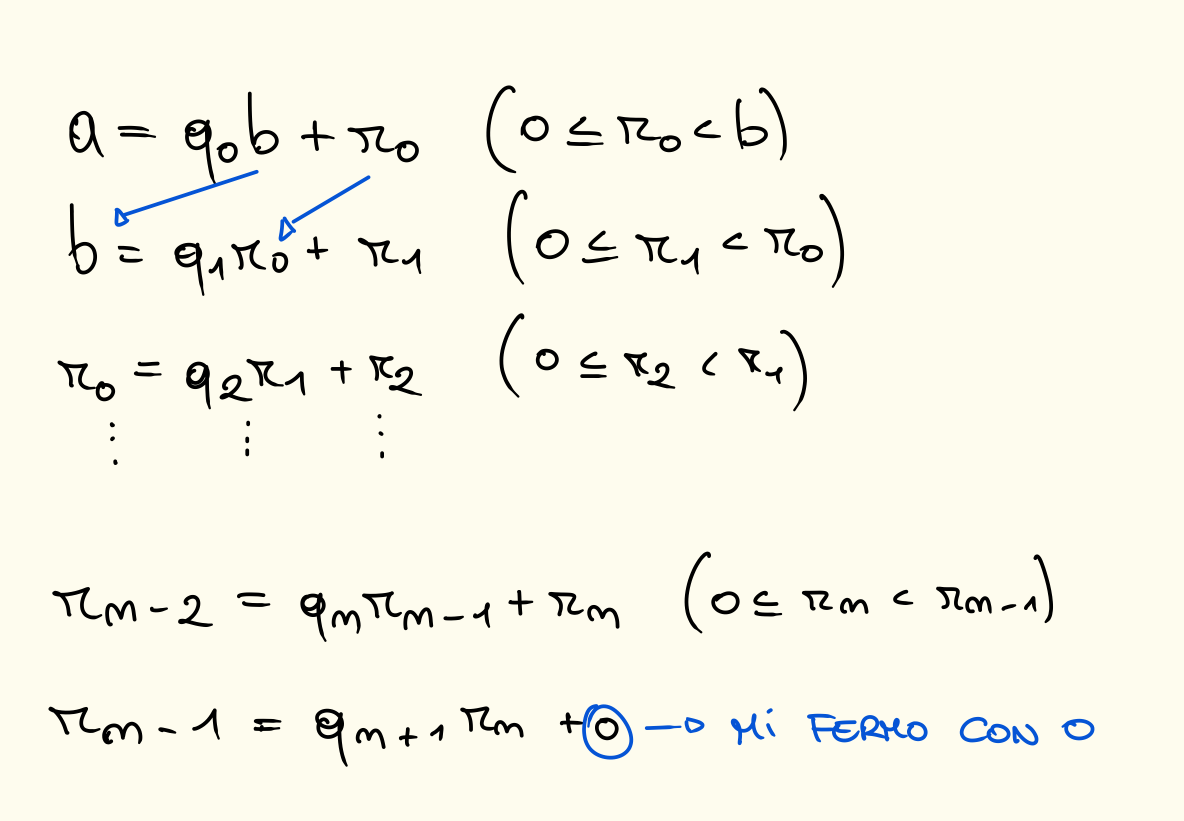 a = q₀b + r₀ (0 ≤ r₀ < b)
b = q₁r₀ + r₁ (0 ≤ r₁ < r₀)
r₀ = q₂r₁ + r₂ (0 ≤ r₂ < r₁)
⋮ ⋮ ⋮
rₙ₋₂ = qₙrₙ₋₁ + rₙ (0 ≤ rₙ < rₙ₋₁)
rₙ₋₁ = qₙ₊₁rₙ + 0 → Mi FERMO CON 0